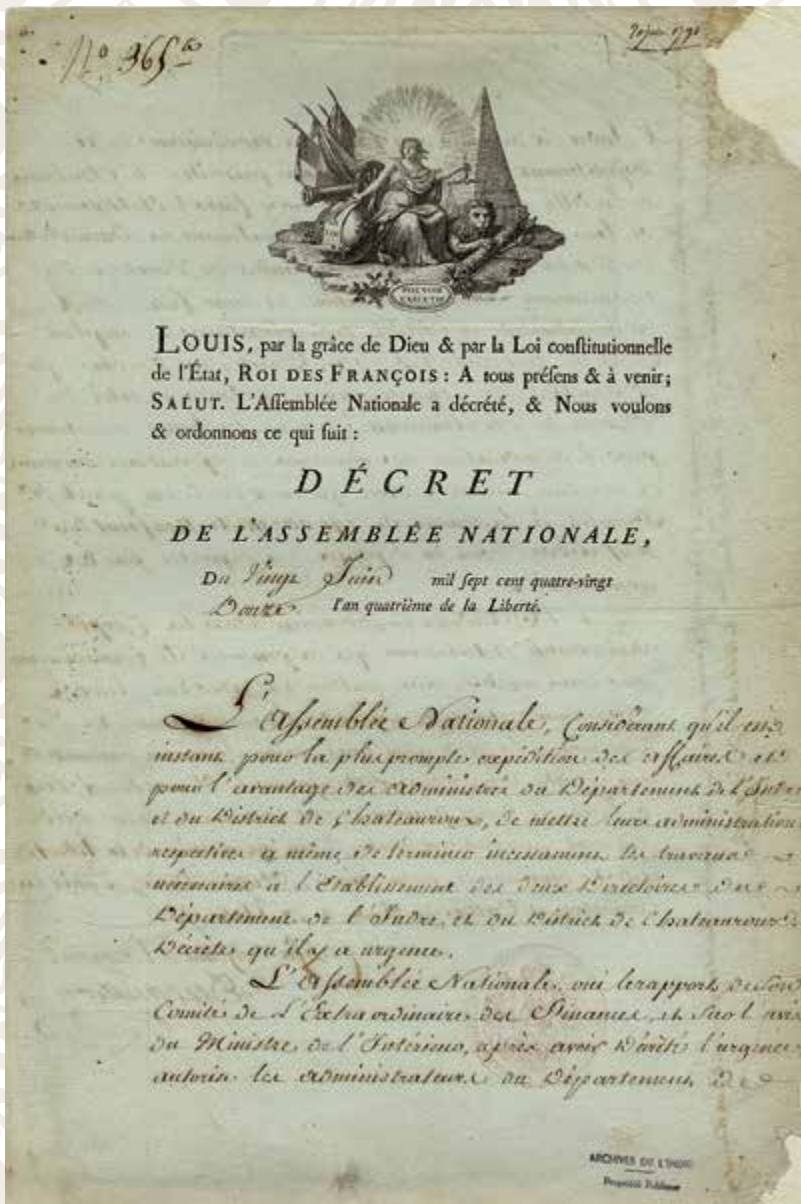 N.o 365.a
20 juin 1792
LOI
POUVOIR
EXÉCUTIF
LOUIS, par la grâce de Dieu & par la Loi conſtitutionnelle
de l'État, ROI DES FRANÇOIS : A tous préſens & à venir ;
SALUT. L'Aſſemblée Nationale a décrété, & Nous voulons
& ordonnons ce qui ſuit :
DÉCRET
DE L'ASSEMBLÉE NATIONALE,
Du Vingt Juin mil ſept cent quatre-vingt
Douze l'an quatrième de la Liberté.
L'Assemblée Nationale, Considérant qu'il est
instant pour la plus prompte expédition des affaires et
pour l'avantage des administrés du Département de l'Indre
et du District de Chateauroux, de mettre leurs administrations
respectives à même de terminer incessamment les travaux
nécessaires à l'établissement des deux Directoires du
Département de l'Indre et du District de Chateauroux
Décrète qu'il y a urgence.
L'Assemblée Nationale, oui le rapport de son
Comité de l'Extraordinaire des Finances, et sur l'avis
du Ministre de l'Intérieur, après avoir Décrété l'urgence
autorise les administrateurs du Département de
ARCHIVES DE L'INDRE
Propriété Publique